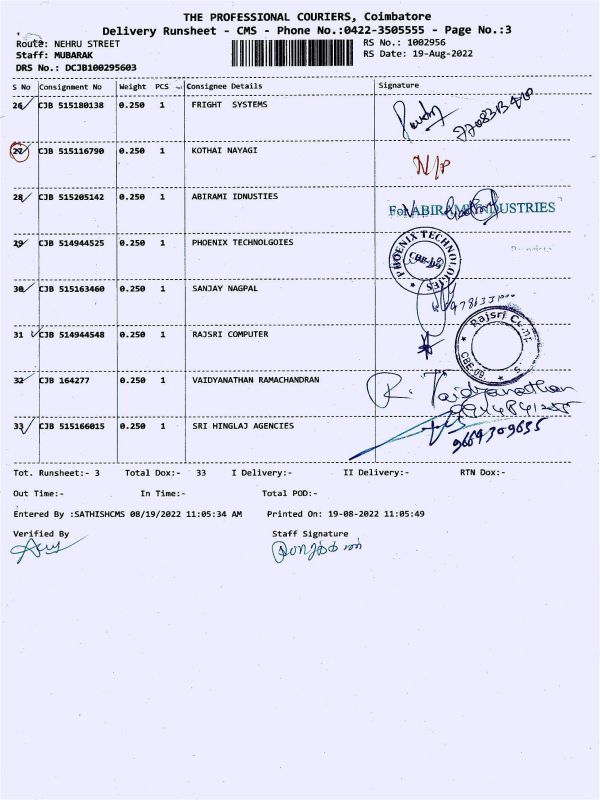 THE PROFESSIONAL COURIERS, Coimbatore
Delivery Runsheet - CMS - Phone No.:0422-3505555 - Page No.:3
Route: NEHRU STREET
RS No.: 1002956
Staff: MUBARAK
RS Date: 19-Aug-2022
DRS No.: DCJB100295603
S No Consignment No Weight PCS Consignee Details Signature
26 CJB 515180138 0.250 1 FRIGHT SYSTEMS
27 CJB 515116790 0.250 1 KOTHAI NAYAGI N/P
28 CJB 515205142 0.250 1 ABIRAMI IDNUSTIES For ABIRAMI INDUSTRIES
29 CJB 514944525 0.250 1 PHOENIX TECHNOLGOIES PHOENIX TECHNOLOGIES
30 CJB 515163460 0.250 1 SANJAY NAGPAL
31 CJB 514944548 0.250 1 RAJSRI COMPUTER Rajsri CBE-09
32 CJB 164277 0.250 1 VAIDYANATHAN RAMACHANDRAN R. Vaidyanathan
33 CJB 515166015 0.250 1 SRI HINGLAJ AGENCIES 9664309635
Tot. Runsheet:- 3 Total Dox:- 33 I Delivery:- II Delivery:- RTN Dox:-
Out Time:- In Time:- Total POD:-
Entered By :SATHISHCMS 08/19/2022 11:05:34 AM Printed On: 19-08-2022 11:05:49
Verified By Staff Signature